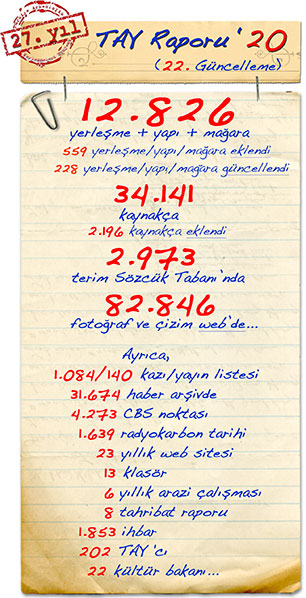 27. Yıl
TAY Raporu '20
(22. Güncelleme)
12.826
yerleşme + yapı + mağara
559 yerleşme/yapı/mağara eklendi
228 yerleşme/yapı/mağara güncellendi
34.141
kaynakça
2.196 kaynakça eklendi
2.973
terim Sözcük Tabanı'nda
82.846
fotoğraf ve çizim web'de...
Ayrıca,
1.084/140 kazı/yayın listesi
31.674 haber arşivde
4.273 CBS noktası
1.639 radyokarbon tarihi
23 yıllık web sitesi
13 klasör
6 yıllık arazi çalışması
8 tahribat raporu
1.853 ihbar
202 TAY'cı
22 kültür bakanı...